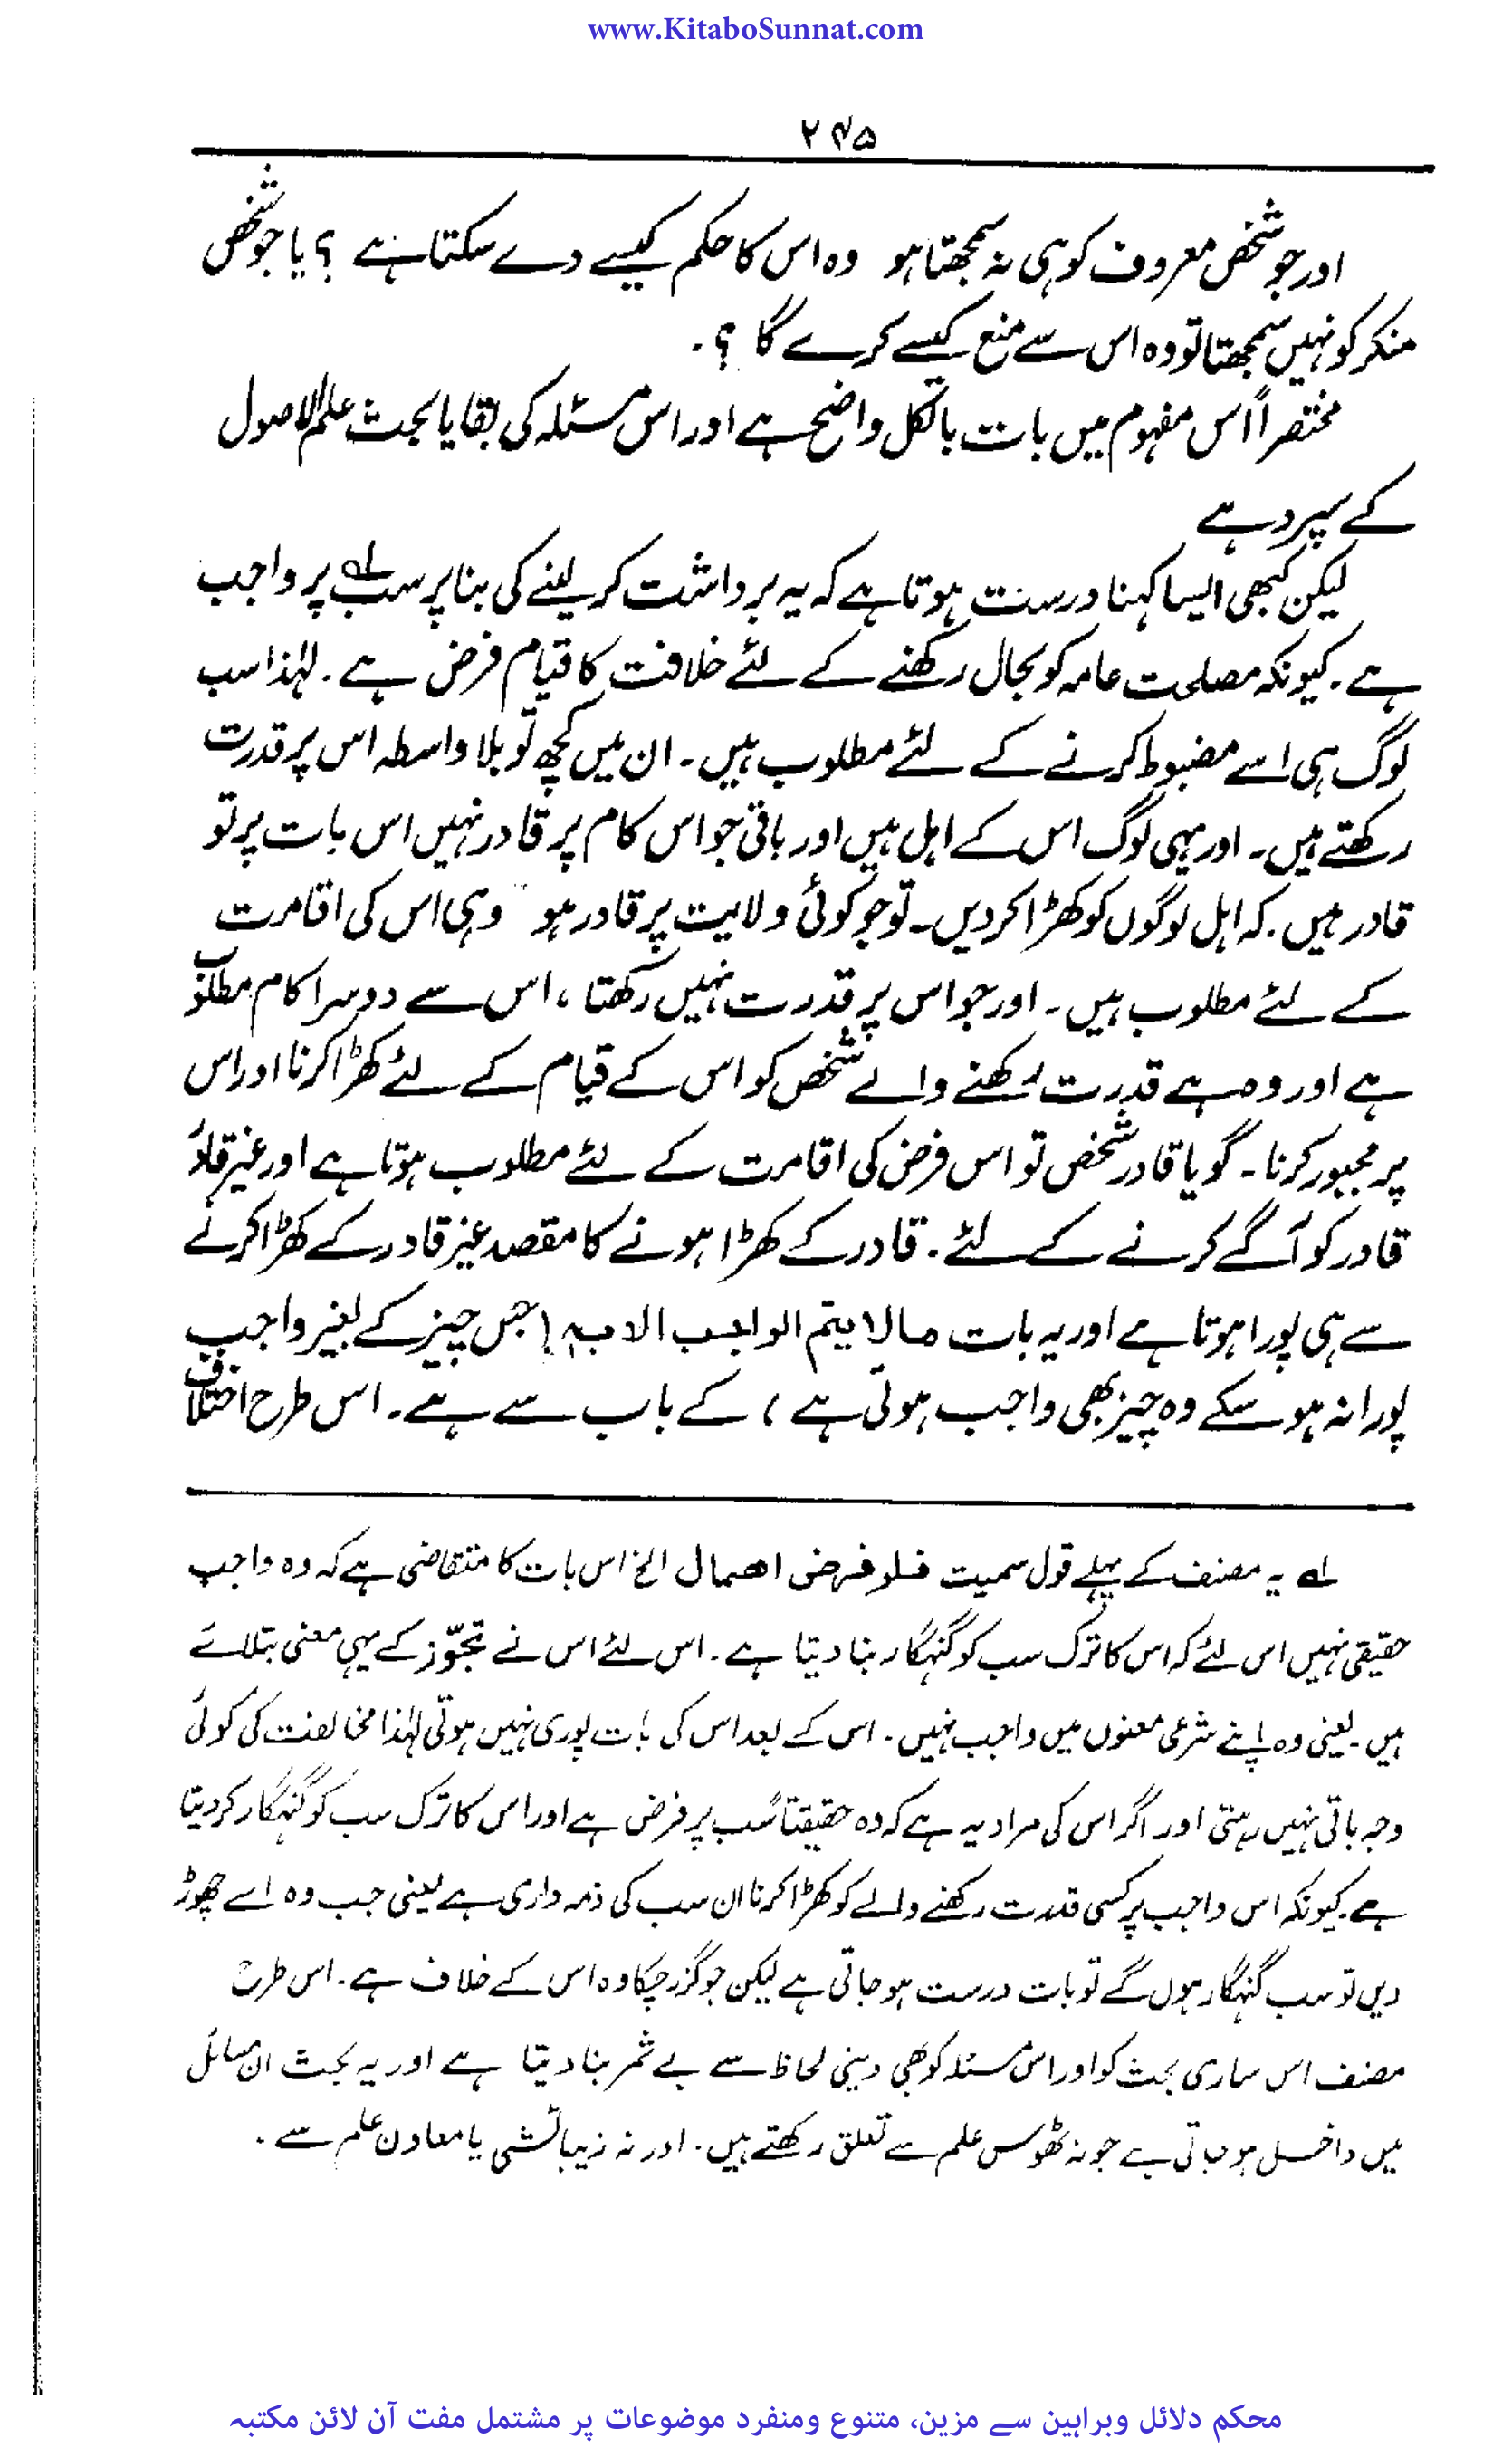 www.KitaboSunnat.com
۲۴۵
اور جو شخص معروف کو ہی نہ سمجھتا ہو وہ اس کا حکم کیسے دے سکتا ہے ؟ یا جو شخص
منکر کو نہیں سمجھتا تو وہ اس سے منع کیسے کرے گا ؟.
مختصراً اس مفہوم میں بات بالکل واضح ہے اور اس مسئلہ کی بقایا بحث علم الاصول
کے سپرد ہے
لیکن کبھی ایسا کہنا درست ہوتا ہے کہ یہ برداشت کر لینے کی بنا پر سب لہ پر واجب
ہے۔ کیونکہ مصلحت عامہ کو بحال رکھنے کے لئے خلافت کا قیام فرض ہے۔ لہٰذا سب
لوگ ہی اسے مضبوط کرنے کے لئے مطلوب ہیں۔ ان میں کچھ تو بلا واسطہ اس پر قدرت
رکھتے ہیں۔ اور یہی لوگ اس کے اہل ہیں اور باقی جو اس کام پر قادر نہیں اس بات پر تو
قادر ہیں۔ کہ اہل لوگوں کو کھڑا کر دیں۔ تو جو کوئی ولایت پر قادر ہو وہی اس کی اقامت
کے لئے مطلوب ہیں۔ اور جو اس پر قدرت نہیں رکھتا ، اس سے دوسرا کام مطلوب
ہے اور وہ ہے قدرت رکھنے والے شخص کو اس کے قیام کے لئے کھڑا کرنا اور اس
پر مجبور کرنا۔ گویا قادر شخص تو اس فرض کی اقامت کے لئے مطلوب ہوتا ہے اور غیر قادر
قادر کو آگے کرنے کے لئے۔ قادر کے کھڑا ہونے کا مقصد غیر قادر کے کھڑا کرنے
سے ہی پورا ہوتا ہے اور یہ بات مالا یتم الواجب الا بہ (جس چیز کے بغیر واجب
پورا نہ ہو سکے وہ چیز بھی واجب ہوتی ہے) کے باب سے ہے۔ اس طرح اختلاف
لہ یہ مصنف کے پہلے قول سمیت فلو فرض اھمال الخ اس بات کا متقاضی ہے کہ وہ واجب
حقیقی نہیں اس لئے کہ اس کا ترک سب کو گنہگار بنا دیتا ہے۔ اس لئے اس نے تجوّز کے یہی معنی بتلائے
ہیں۔ یعنی وہ اپنے شرعی معنوں میں واجب نہیں۔ اس کے بعد اس کی بات پوری نہیں ہوتی لہٰذا مخالفت کی کوئی
وجہ باقی نہیں رہتی اور اگر اس کی مراد یہ ہے کہ وہ حقیقتاً سب پر فرض ہے اور اس کا ترک سب کو گنہگار کر دیتا
ہے۔ کیونکہ اس واجب پر کسی قدرت رکھنے والے کو کھڑا کرنا ان سب کی ذمہ داری ہے یعنی جب وہ اسے چھوڑ
دیں تو سب گنہگار ہوں گے تو بات درست ہو جاتی ہے لیکن جو گزر چکا وہ اس کے خلاف ہے۔ اس طرح
مصنف اس ساری بحث کو اور اس مسئلہ کو بھی دینی لحاظ سے بے ثمر بنا دیتا ہے اور یہ بحث ان مسائل
میں داخل ہو جاتی ہے جو نہ ٹھوس علم سے تعلق رکھتے ہیں۔ اور نہ زیبائشی یا معاون علم سے۔
محکم دلائل وبراہین سے مزین، متنوع ومنفرد موضوعات پر مشتمل مفت آن لائن مکتبہ